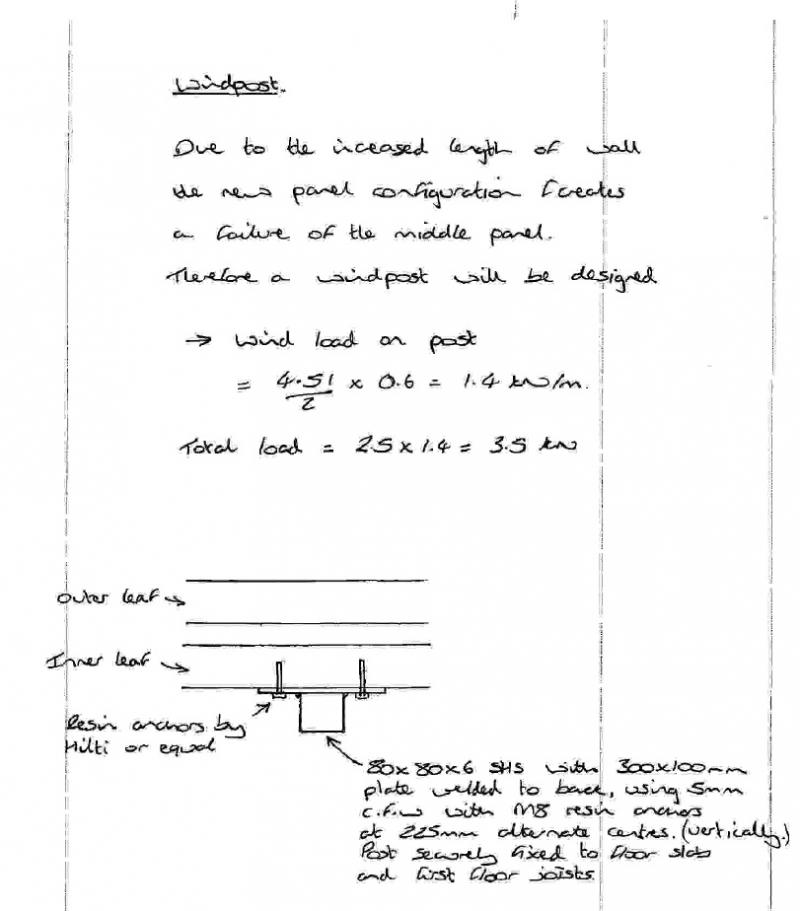 Windpost.
Due to the inceased length of wall
the new panel configuration creates
a failure of the middle panel.
Therefore a windpost will be designed
→ Wind load on post
= 4.51/2 x 0.6 = 1.4 kN/m.
Total load = 2.5 x 1.4 = 3.5 kN
Outer leaf
Inner leaf
Resin anchors by
Hilti or equal
80x80x6 SHS with 300x100mm
plate welded to back, using 5mm
c.f.w with M8 resin anchors
at 225mm alternate centres. (vertically.)
Post securely fixed to floor slab
and first floor joists.